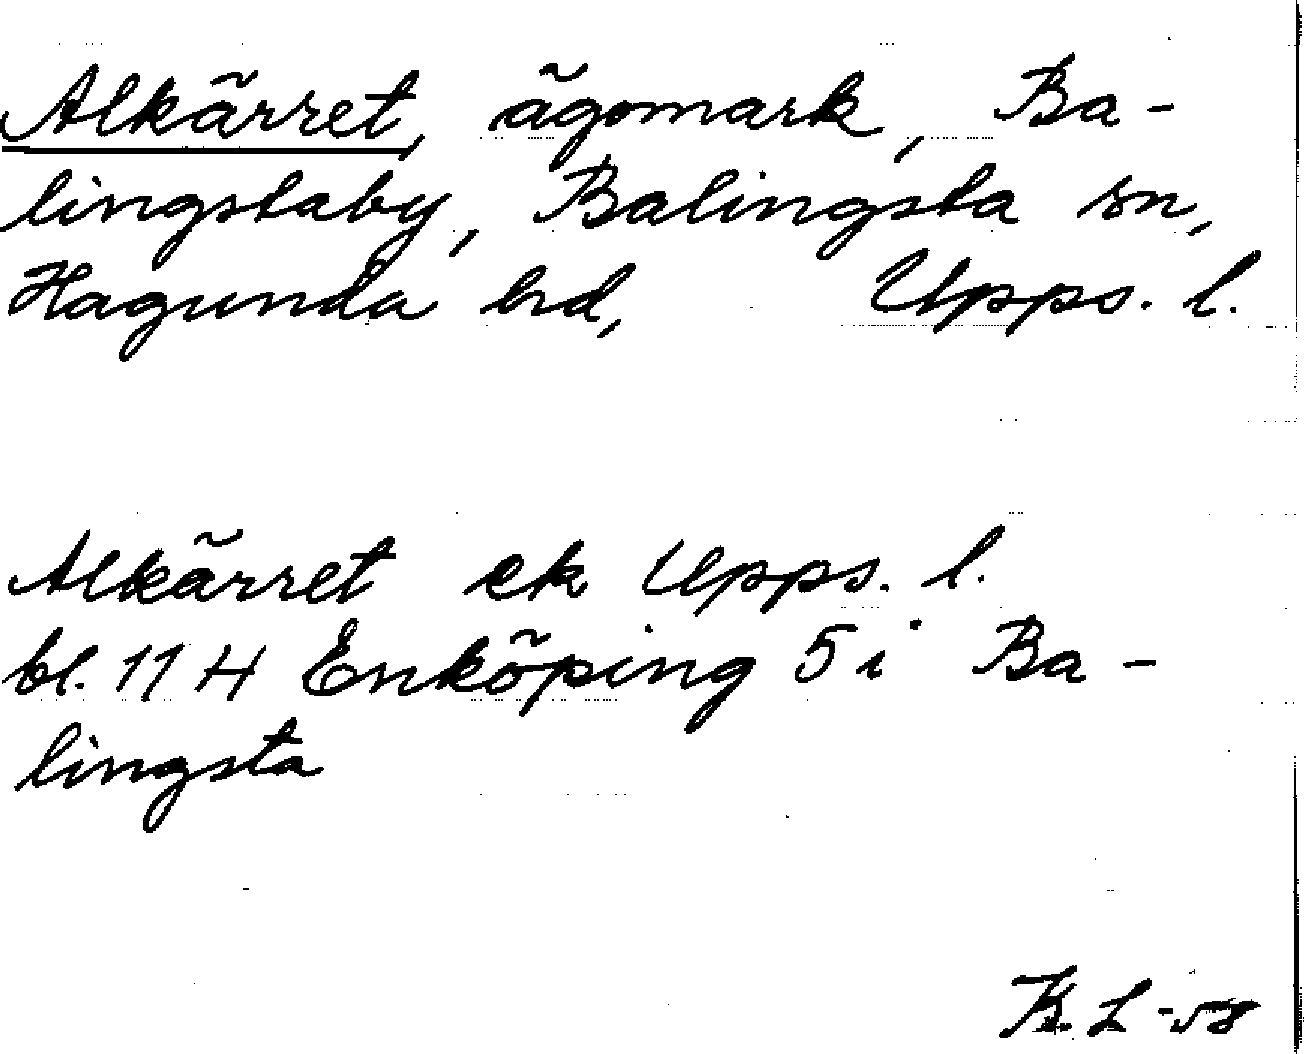 Alkärret, ägomark, Ba-
lingstaby, Balingsta sn,
Hagunda hd, Upps. l.
Alkärret ek Upps. l.
bl. 11 H Enköping 5 i Ba-
lingsta
K. L -58